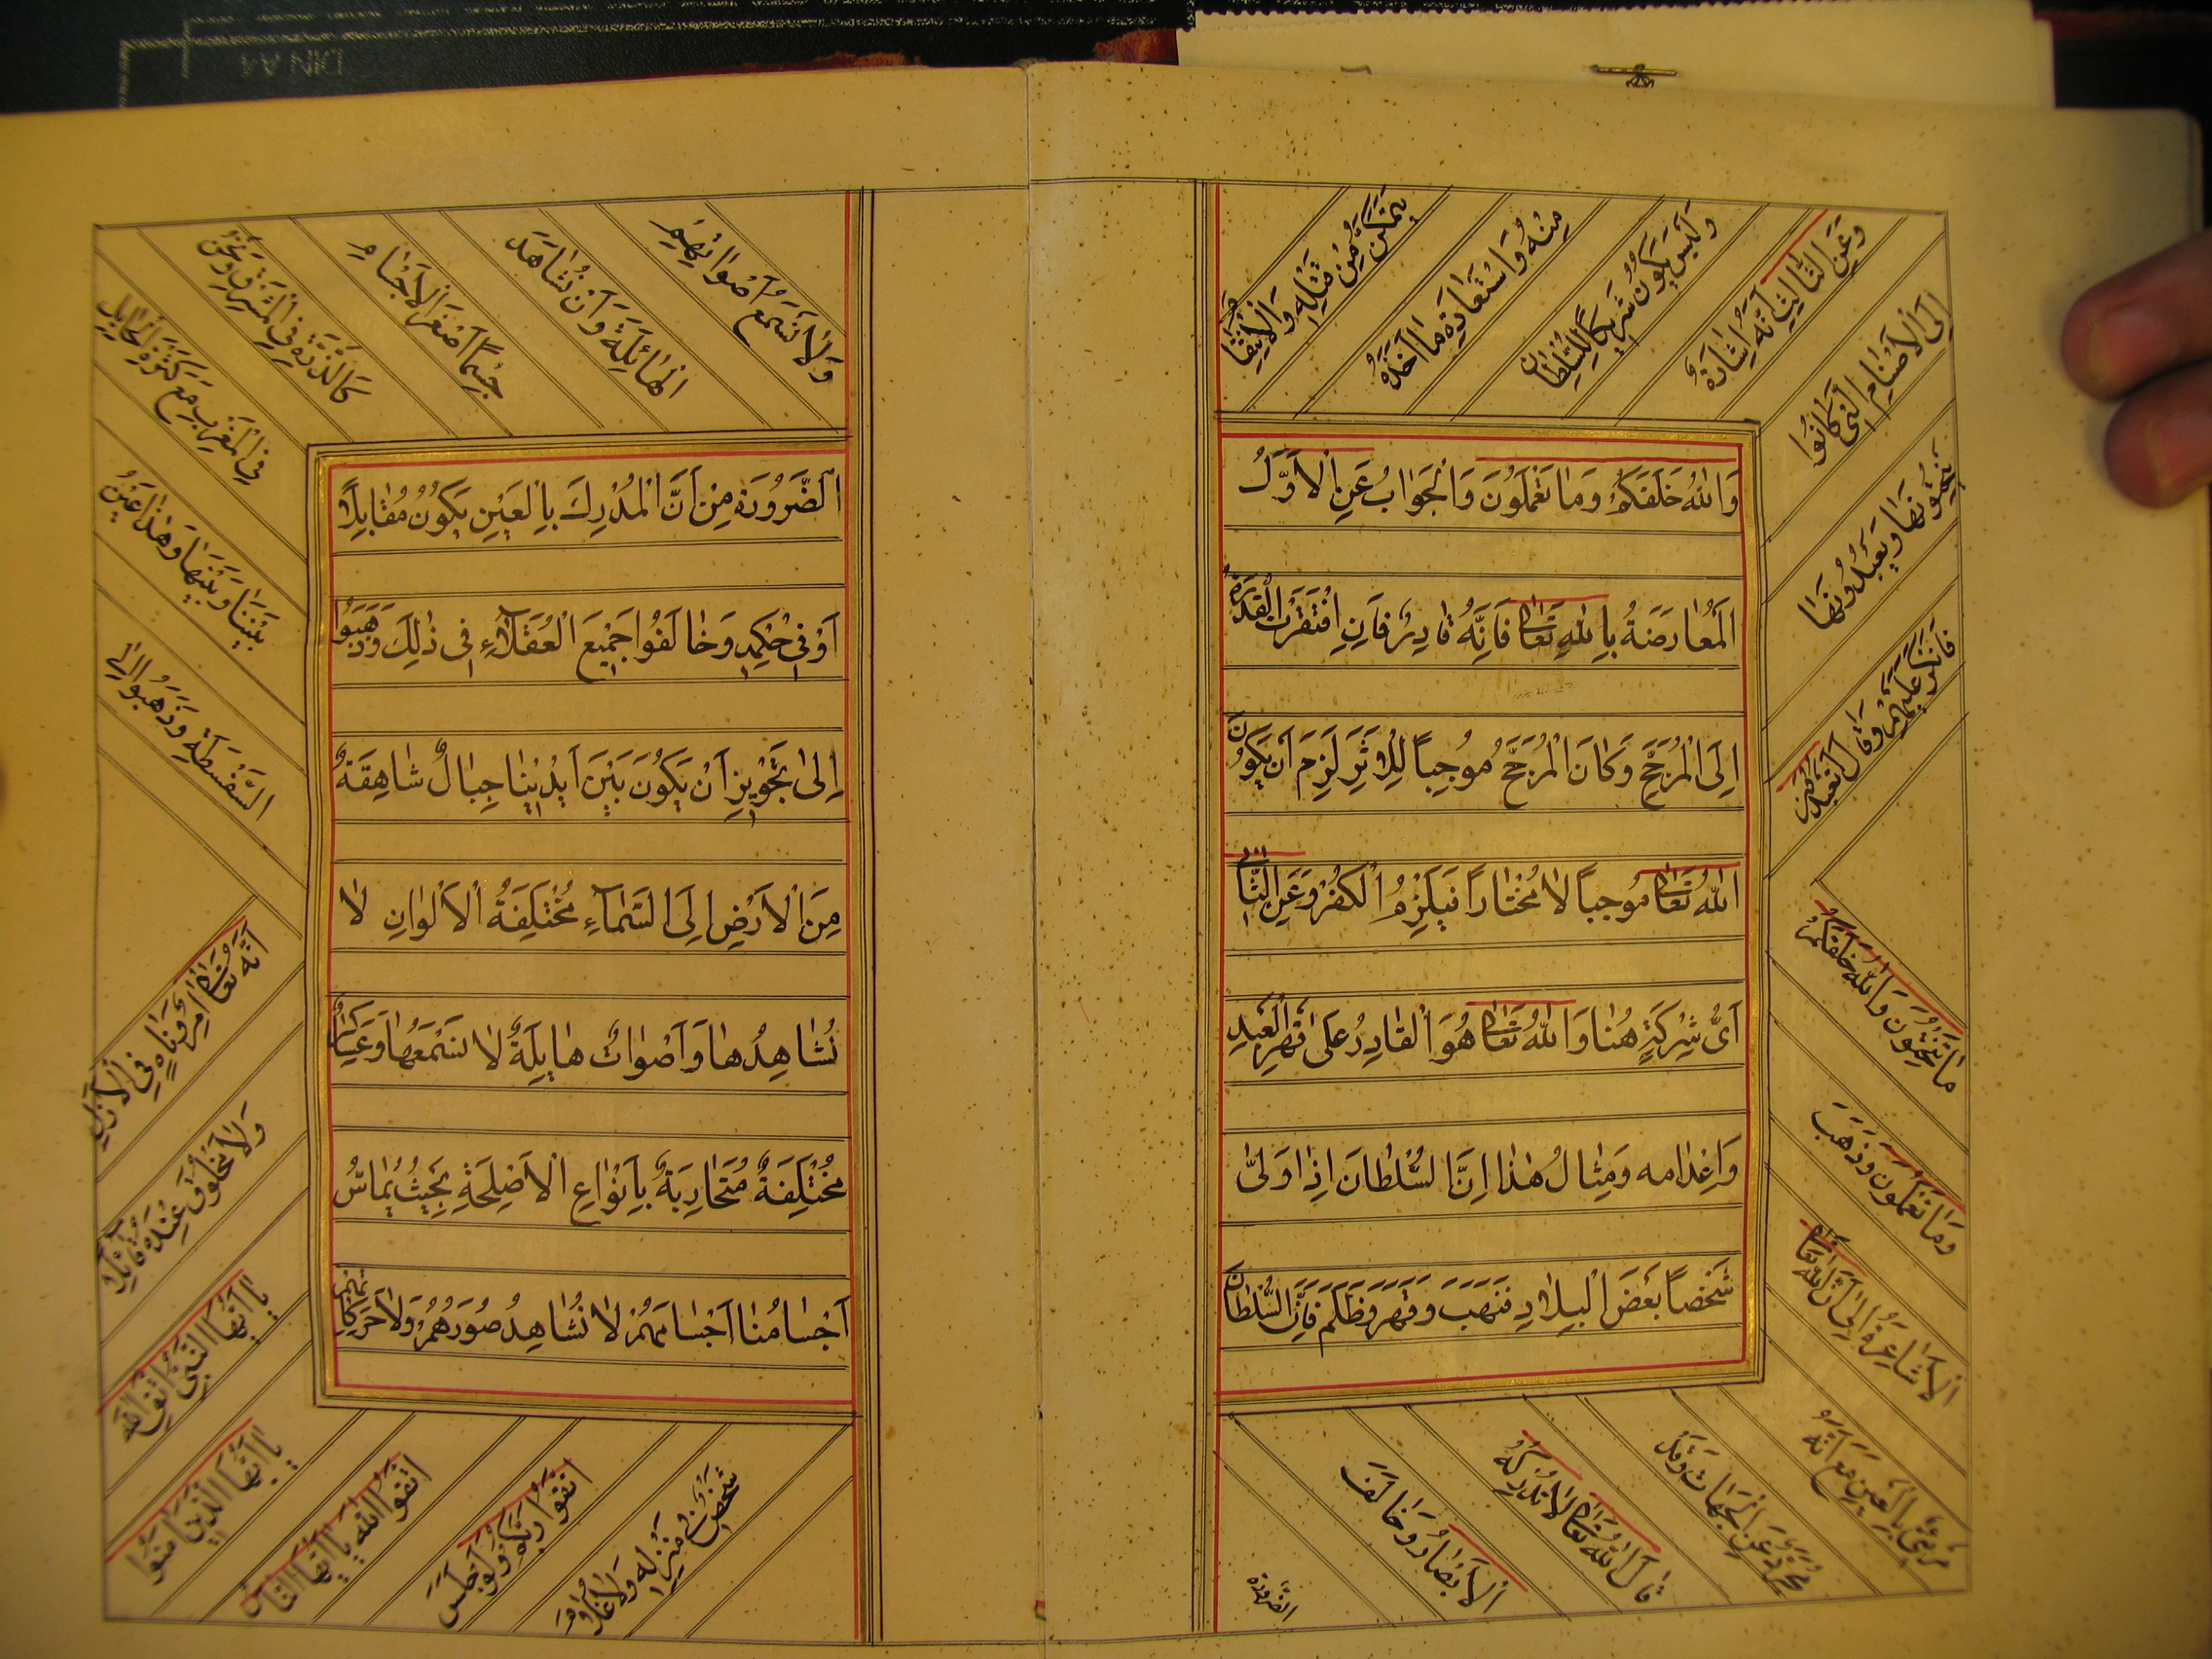 وَاللهُ خَلَقَكُمْ وَمَا تَعْمَلُونَ وَالْجَوَابُ عَنِ الْاَوَّلِ
اَلْمُعَارَضَةُ بِاللهِ تَعَالٰى فَاِنَّهُ قَادِرٌ فَاِنِ افْتَقَرَتِ الْقُدْرَةُ
اِلَى الْمُرَجِّحِ وَكَانَ الْمُرَجِّحُ مُوجِبًا لِلْاَثَرِ لَزِمَ اَنْ يَكُونَ
اللهُ تَعَالٰى مُوجِبًا لَا مُخْتَارًا فَيَلْزِمُ الْكُفْرُ وَعَنِ الثَّانِى
اَىُّ شِرْكَةٍ هُنَا وَاللهُ تَعَالٰى هُوَ الْقَادِرُ عَلٰى قَهْرِ الْعَبْدِ
وَاِعْدَامِهِ وَمِثَالُ هٰذَا اِنَّ السُّلْطَانَ اِذَا وَلّٰى
شَخْصًا بَعْضَ الْبِلَادِ فَنَهَبَ وَقَهَرَ وَظَلَمَ فَاِنَّ السُّلْطَانَ
يَتَمَكَّنُ مِنْ قَتْلِهِ وَالْاِنْتِقَامِ
مِنْهُ وَاسْتِعَادَةِ مَا اَخَذَهُ
وَلَيْسَ يَكُونُ شَرِيكًا لِلسُّلْطَانِ
وَعَنِ الثَّالِثِ اَنَّهُ اِشَارَةٌ
اِلَى الْاَصْنَامِ الَّتِى كَانُوا
يَنْحِتُونَهَا وَيَعْبُدُونَهَا
فَاَنْكَرَ عَلَيْهِمْ وَقَالَ اَتَعْبُدُونَ
مَا تَنْحِتُونَ وَاللهُ خَلَقَكُمْ
وَمَا تَعْمَلُونَ وَذَهَبَ
الْاَشَاعِرَةُ اِلٰى اَنَّ اللهَ تَعَالٰى
مَرْئِىٌّ بِالْعَيْنِ مَعَ اَنَّهُ
مُجَرَّدٌ عَنِ الْجِهَاتِ وَقَدْ
قَالَ اللهُ تَعَالٰى لَا تُدْرِكُهُ
الْاَبْصَارُ وَخَالَفَ
الضَّرُورَةَ
اَلضَّرُورَةَ مِنْ اَنَّ الْمُدْرِكَ بِالْعَيْنِ يَكُونُ مُقَابِلًا
اَوْ فِى حُكْمِهِ وَخَالَفُوا جَمِيعَ الْعُقَلَاءِ فِى ذٰلِكَ وَذَهَبُوا
اِلٰى تَجْوِيزِ اَنْ يَكُونَ بَيْنَ اَيْدِينَا جِبَالٌ شَاهِقَةٌ
مِنَ الْاَرْضِ اِلَى السَّمَاءِ مُخْتَلِفَةُ الْاَلْوَانِ لَا
نُشَاهِدُهَا وَاَصْوَاتٌ هَايِلَةٌ لَا نَسْمَعُهَا وَعَسَاكِرُ
مُخْتَلِفَةٌ مُتَحَارِبَةٌ بِاَنْوَاعِ الْاَصْلِحَةِ بِحَيْثُ يُمَاسُّ
اَجْسَامُنَا اَجْسَامَهُمْ لَا نُشَاهِدُ صُوَرَهُمْ وَلَا حَرَكَاتِهِمْ
وَلَا نَسْمَعُ اَصْوَاتَهُمْ
الْهَائِلَةَ وَاَنْ نُشَاهِدَ
جِسْمًا اَصْغَرَ الْاَجْسَامِ
كَالذَّرَّةِ فِى الْمَشْرِقِ وَنَحْنُ
فِى الْمَغْرِبِ مَعَ كَثْرَةِ الْحَايِلِ
بَيْنَنَا وَبَيْنَهَا وَهٰذَا عَيْنُ
السَّفْسَطَةِ وَذَهَبُوا اِلٰى
اَنَّهُ تَعَالٰى اٰمِرٌ وَنَاهٍ فِى الْاَزَلِ
وَلَا مَخْلُوقَ عِنْدَهُ قَائِلًا
يَا اَيُّهَا النَّبِىُّ اتَّقِ اللهَ
يَا اَيُّهَا الَّذِينَ اٰمَنُوا
اتَّقُوا اللهَ يَا اَيُّهَا النَّاسُ
اتَّقُوا رَبَّكُمْ وَلَوْ جَلَسَ
شَخْصٌ فِى مَنْزِلِهِ وَلَا غُلَامَ